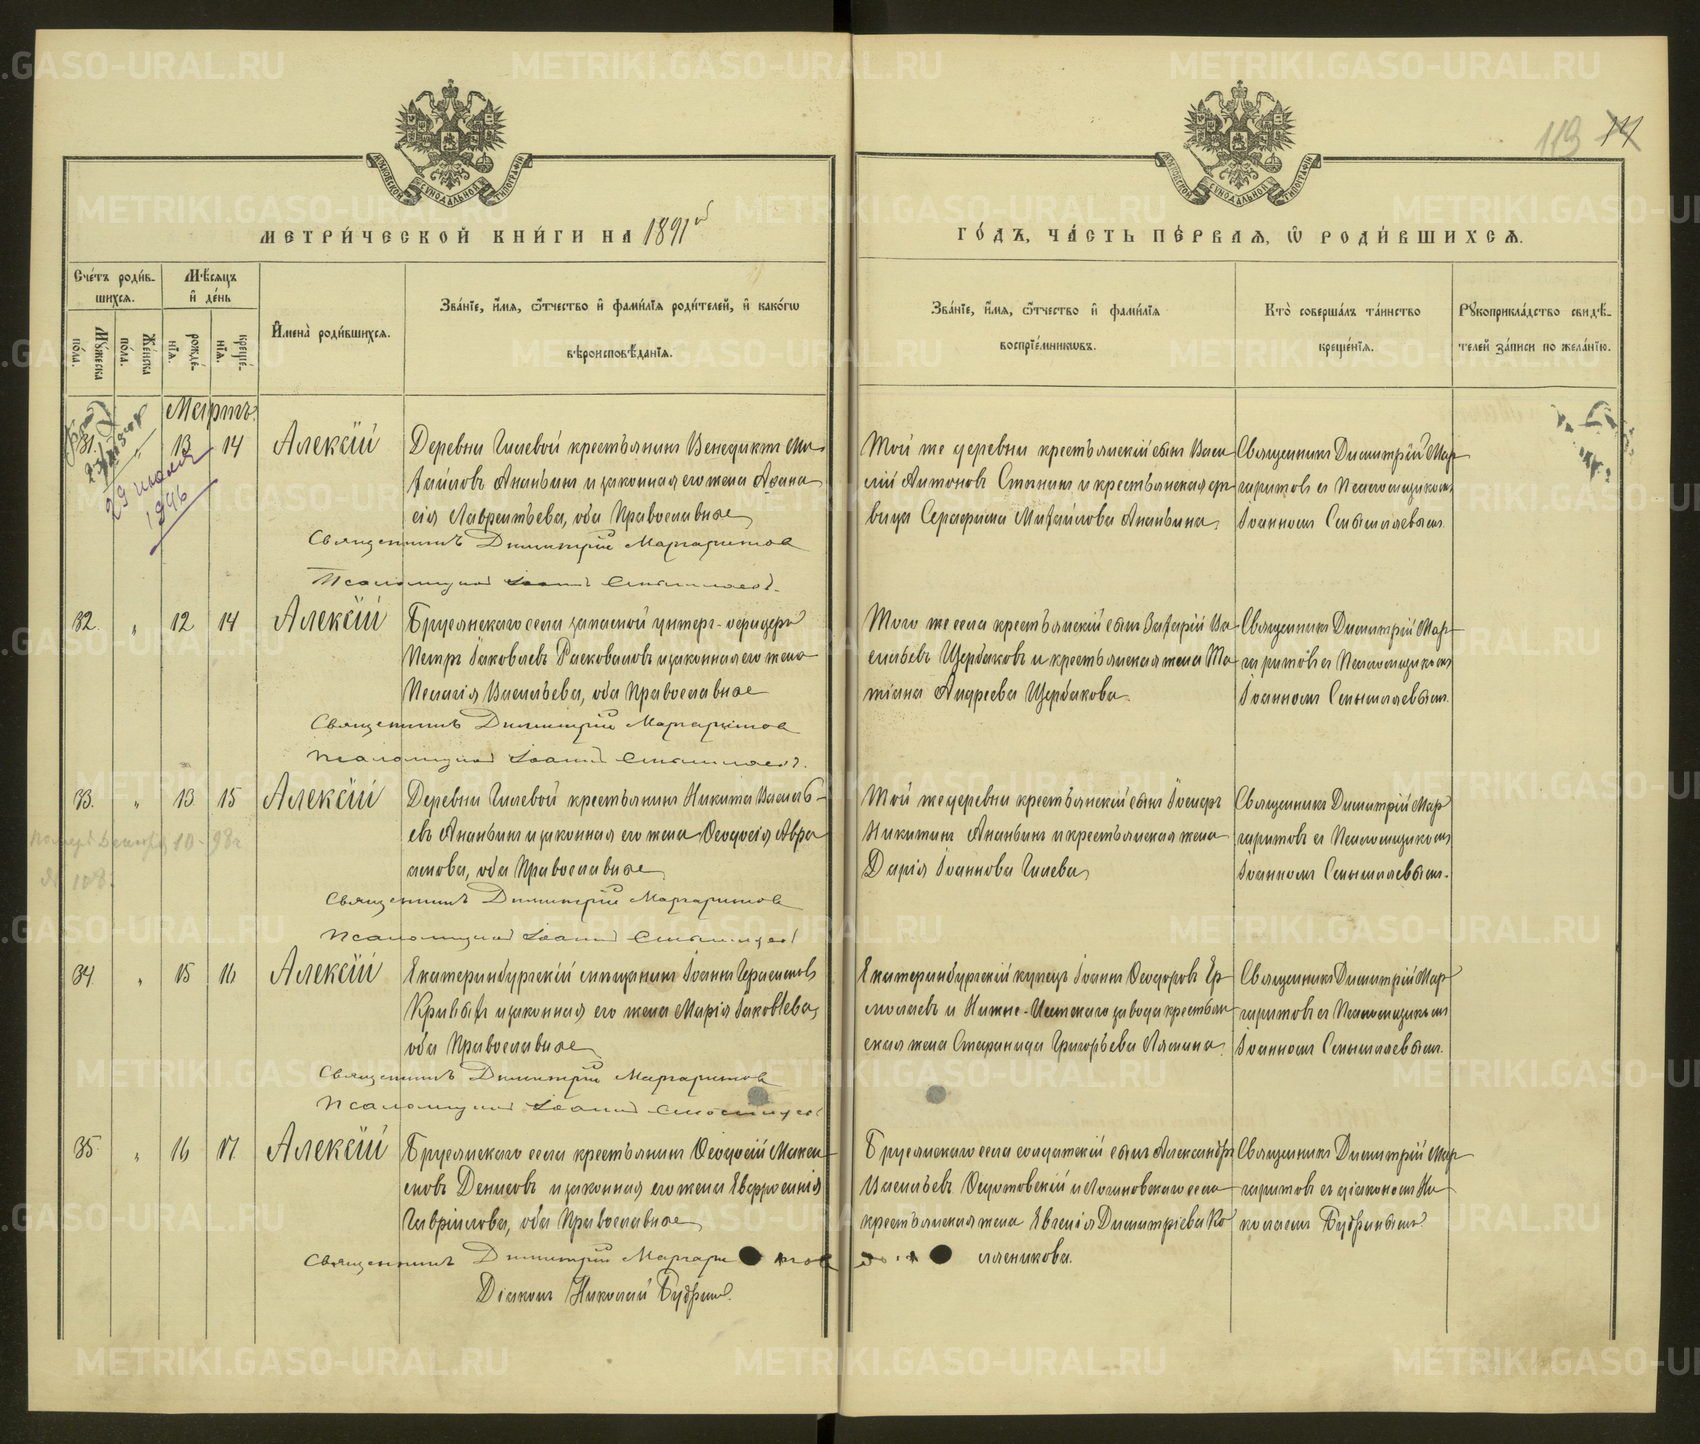 113
МЕТРИ́ЧЕСКОЙ КНИ́ГИ НА 1891й
ГО́ДЪ, ЧА́СТЬ ПЕ́РВАЯ, Ѡ РОДИ́ВШИХСѦ.
Сче́тъ роди́в-
шихся.
Мѣ́сяцъ
и҆ де́нь
Му́жеска
по́ла.
Же́нска
по́ла.
рожде́-
нїѧ.
креще́-
нїѧ.
И҆мена̀ роди́вшихсѧ.
Зва́нїе, и҆́мѧ, ѻ҆́тчество и҆ фами́лїѧ роди́телей, и҆ како́гѡ
вѣроисповѣ́данїѧ.
Зва́нїе, и҆́мѧ, ѻ҆́тчество и҆ фами́лїѧ
воспрїе́мникѡвъ.
Кто̀ соверша́лъ та́инство
креще́нїѧ.
Рꙋкоприкла́дство свидѣ́-
телей за́писи по жела́нїю.
Мартъ.
31. " 13 14 Алексѣй
29 июля
1896
Деревни Гилевой крестьянинъ Венедиктъ Ми-
хайловъ Ананьинъ и законная его жена Афана
сія Лаврентьева, оба Православные
Священникъ Димитрій Маргаритовъ
Псаломщикъ Іоаннъ Смышляевъ.
Той же деревни крестьянскій сынъ Васи
лій Антоновъ Стенинъ и крестьянская дѣ
вица Серафима Михайлова Ананьина.
Священникъ Димитрій Мар
гаритовъ съ Псаломщикомъ
Іоанномъ Смышляевымъ.
32. " 12 14 Алексѣй
Бруснянскаго села запасной унтеръ-офицеръ
Петръ Іаковлевъ Расковаловъ и законная его жена
Пелагія Васильева, оба Православные
Священникъ Димитрій Маргаритовъ
Псаломщикъ Іоаннъ Смышляевъ.
Того же села крестьянскій сынъ Захарій Ва
сильевъ Щербаковъ и крестьянская жена Та
тіана Андреева Щербакова.
Священникъ Димитрій Мар
гаритовъ съ Псаломщикомъ
Іоанномъ Смышляевымъ.
33. " 13 15 Алексѣй
Деревни Гилевой крестьянинъ Никита Василь-
евъ Ананьинъ и законная его жена Ѳеодосія Авра
амова, оба Православные
Священникъ Димитрій Маргаритовъ
Псаломщикъ Іоаннъ Смышляевъ
Той же деревни крестьянскій сынъ
Никитинъ Ананьинъ и крестьянская жена
Дарія Іоаннова Гилева
Священникъ Димитрій Мар
гаритовъ съ Псаломщикомъ
Іоанномъ Смышляевымъ.
34. " 15 16 Алексѣй
Екатеринбургскій мѣщанинъ Іоаннъ Герасимовъ
Кривыхъ и законная его жена Марія Іаковлева,
оба Православные
Священникъ Димитрій Маргаритовъ
Псаломщикъ Іоаннъ Смышляевъ
Екатеринбургскій купецъ Іоаннъ Ѳеодоровъ Ер
молаевъ и Нижне-Исетскаго завода крестьян
ская жена Стефанида Григорьева Лямина.
Священникъ Димитрій Мар
гаритовъ съ Псаломщикомъ
Іоанномъ Смышляевымъ.
35. " 16 17 Алексѣй
Бруснянскаго села крестьянинъ Ѳеодосій Макси
мовъ Денисовъ и законная его жена Евфросинія
Гавріилова, оба Православные
Священникъ Димитрій Маргаритовъ
Діаконъ Николай Будринъ.
Бруснянскаго села солдатскій сынъ Александръ
Васильевъ Ѳедотовскій и Логиновскаго села
крестьянская жена Евгенія Димитріева Ко
лясникова.
Священникъ Димитрій Мар
гаритовъ съ діакономъ Ни
колаемъ Будринымъ